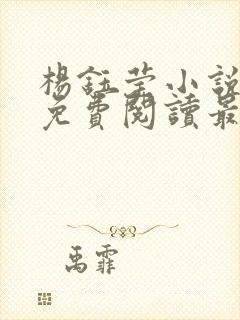 楊鈺莹小說
免費閱讀最
禹霏